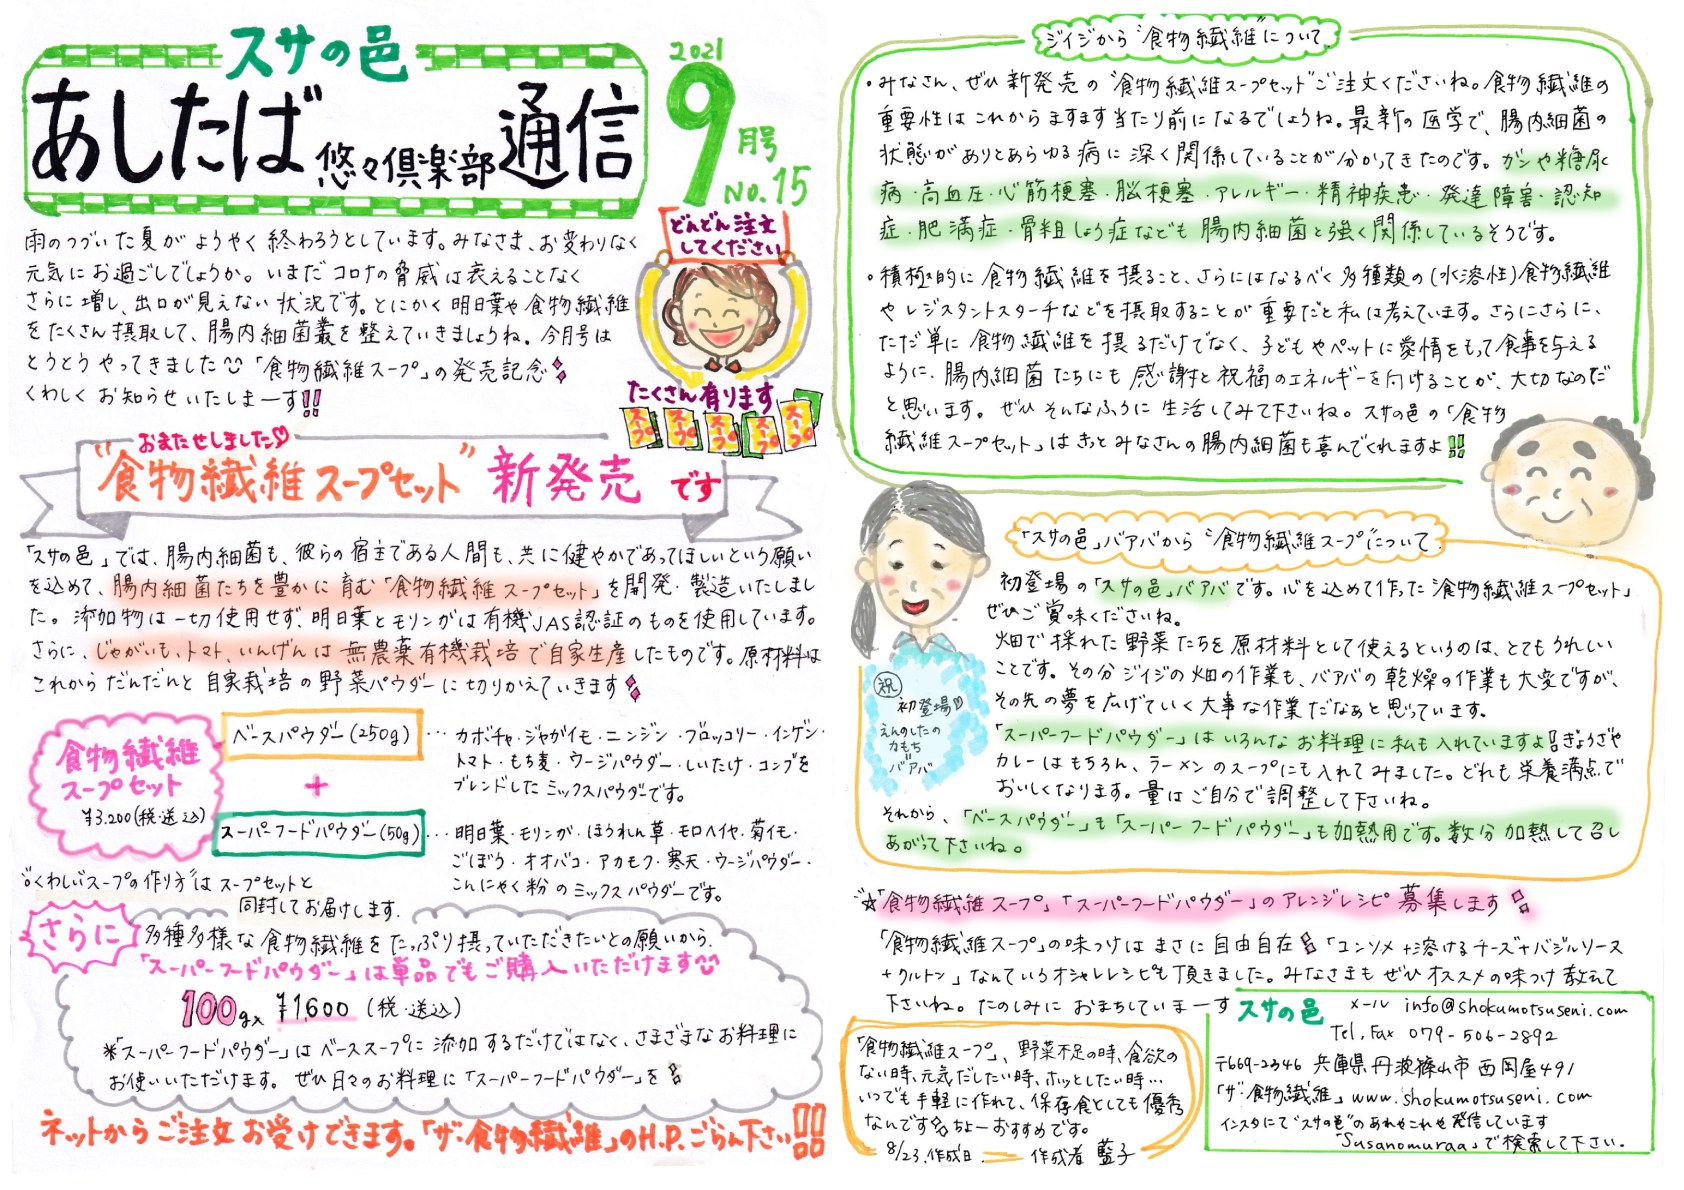 スサの邑
あしたば悠々倶楽部通信
2021
9月号
No.15
どんどん注文
してください
雨のつづいた夏がようやく終わろうとしています。みなさま、お変わりなく
元気にお過ごしでしょうか。いまだコロナの脅威は衰えることなく
さらに増し、出口が見えない状況です。とにかく明日葉や食物繊維
をたくさん摂取して、腸内細菌叢を整えていきましょうね。今月号は
とうとうやってきました「食物繊維スープ」の発売記念
くわしくお知らせいたしまーす!!
たくさん有ります
スープ
スープ
スープ
スープ
スープ
おまたせしました♡
"食物繊維スープセット"新発売です
「スサの邑」では、腸内細菌も、彼らの宿主である人間も、共に健やかであってほしいという願い
を込めて、腸内細菌たちを豊かに育む「食物繊維スープセット」を開発・製造いたしまし
た。添加物は一切使用せず、明日葉とモリンガは有機JAS認証のものを使用しています。
さらに、じゃがいも、トマト、いんげんは無農薬有機栽培で自家生産したものです。原材料は
これからだんだんと自家栽培の野菜パウダーに切りかえていきます
食物繊維
スープセット
¥3,200(税・送込)
ベースパウダー(250g)
+
スーパーフードパウダー(50g)
…カボチャ・ジャガイモ・ニンジン・ブロッコリー・インゲン・
トマト・もち麦・ウージパウダー・しいたけ・コンブを
ブレンドしたミックスパウダーです。
…明日葉・モリンガ・ほうれん草・モロヘイヤ・菊イモ・
ごぼう・オオバコ・アカモク・寒天・ウージパウダー・
こんにゃく粉のミックスパウダーです。
"くわしいスープの作り方"はスープセットと
同封してお届けします.
さらに
多種多様な食物繊維をたっぷり摂っていただきたいとの願いから、
「スーパーフードパウダー」は単品でもご購入いただけます
100g入 ¥1,600 (税・送込)
※「スーパーフードパウダー」はベーススープに添加するだけではなく、さまざまなお料理に
お使いいただけます。ぜひ日々のお料理に「スーパーフードパウダー」を
ネットからご注文お受けできます。「ザ・食物繊維」のH.P.ごらん下さい!!
ジイジから"食物繊維"について
・みなさん、ぜひ新発売の"食物繊維スープセット"ご注文くださいね。食物繊維の
重要性はこれからますます当たり前になるでしょうね。最新の医学で、腸内細菌の
状態がありとあらゆる病に深く関係していることが分かってきたのです。ガンや糖尿
病・高血圧・心筋梗塞・脳梗塞・アレルギー・精神疾患・発達障害・認知
症・肥満症・骨粗しょう症なども腸内細菌と強く関係しているそうです。
・積極的に食物繊維を摂ること、さらにはなるべく多種類の(水溶性)食物繊維
やレジスタントスターチなどを摂取することが重要だと私は考えています。さらにさらに、
ただ単に食物繊維を摂るだけでなく、子どもやペットに愛情をもって食事を与える
ように、腸内細菌たちにも感謝と祝福のエネルギーを向けることが、大切なのだ
と思います。ぜひそんなふうに生活してみて下さいね。スサの邑の「食物
繊維スープセット」はきっとみなさんの腸内細菌も喜んでくれますよ!!
「スサの邑」バアバから"食物繊維スープ"について
初登場の「スサの邑」バアバです。心を込めて作った「食物繊維スープセット」
ぜひご賞味くださいね。
畑で採れた野菜たちを原材料として使えるというのは、とてもうれしい
ことです。その分ジイジの畑の作業も、バアバの乾燥の作業も大変ですが、
その先の夢を広げていく大事な作業だなぁと思っています。
「スーパーフードパウダー」はいろんなお料理に私も入れていますよ!ぎょうざや
カレーはもちろん、ラーメンのスープにも入れてみました。どれも栄養満点で
おいしくなります。量はご自分で調整して下さいね。
それから、「ベースパウダー」も「スーパーフードパウダー」も加熱用です。数分加熱して召し
あがって下さいね。
祝
初登場!!
えんのしたの
力もち
バアバ
☆「食物繊維スープ」「スーパーフードパウダー」のアレンジレシピ募集します
「食物繊維スープ」の味つけはまさに自由自在!「コンソメ+溶けるチーズ+バジルソース
+クルトン」なんていうオシャレレシピも頂きました。みなさまもぜひオススメの味つけ教えて
下さいね。たのしみにおまちしていまーす
「食物繊維スープ」、野菜不足の時、食欲の
ない時、元気だしたい時、ホッとしたい時…
いつでも手軽に作れて、保存食としても優秀
なんです。ちょーおすすめです。
8/23.作成日 作成者 藍子
スサの邑 メール info@shokumotsuseni.com
Tel,Fax 079-506-2892
〒669-2346 兵庫県丹波篠山市西岡屋491
「ザ・食物繊維」www.shokumotsuseni.com
インスタにて"スサの邑"のあれやこれや発信しています
「Susanomuraa」で検索して下さい.